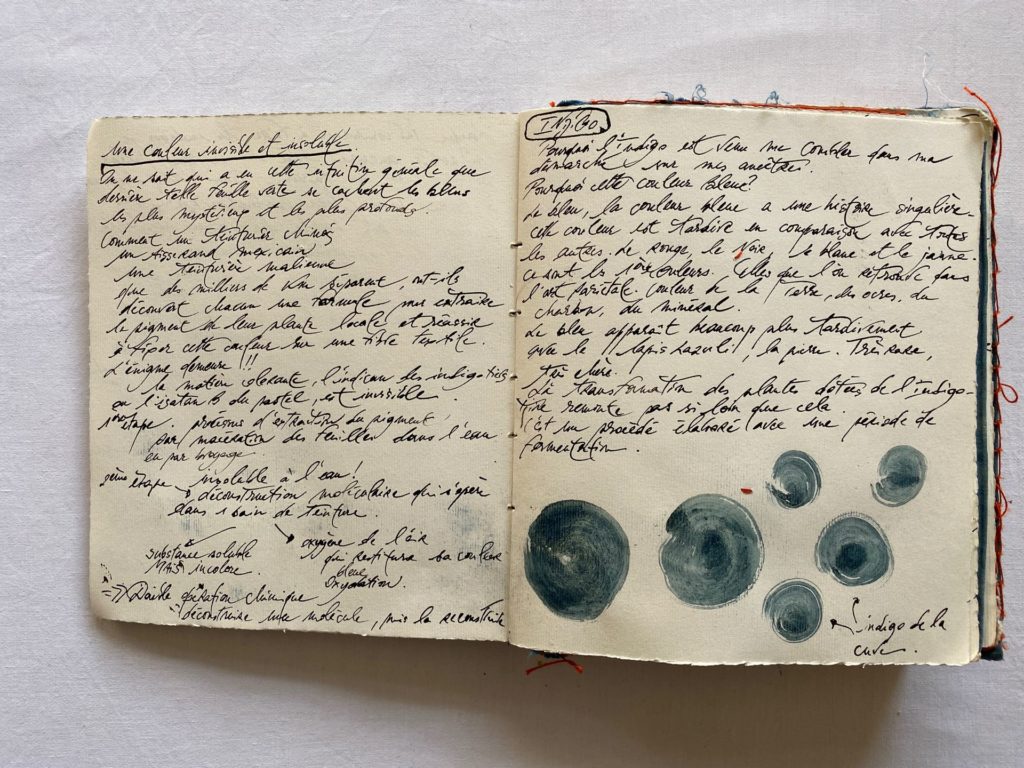 Une couleur invisible et insoluble
On ne sait qui a eu cette intuition géniale que
derrière telle feuille verte se cachent les bleus
les plus mystérieux et les plus profonds.
Comment un teinturier chinois
un tisserand mexicain
une teinturière malienne
que des milliers de km séparent, ont-ils
découvert chacun une formule pour extraire
le pigment de leur plante locale et réussir
à fixer cette couleur sur une fibre textile.
L'énigme demeure!!
la matière colorante, l'indican des indigotiers
ou l'isatan B du pastel, est invisible.
1ère étape. d'extraction du pigment
par macération des feuilles dans l'eau
ou par broyage.
2ème étape insoluble à l'eau!
déconstruction moléculaire qui s'opère
dans 1 bain de teinture.
substance soluble
Mais incolore
oxygène de l'air
qui restitura sa couleur
bleue
Oxydation.
=> Double opération chimique
déconstruire une molécule, puis la reconstruire
INDIGO.
Pourquoi l'indigo est venu me combler dans ma
démarche sur mes ancêtres.
Pourquoi cette couleur bleue?
Le bleu, la couleur bleue a une histoire singulière.
cette couleur est tardive en comparaison avec toutes
les autres. Le rouge, le Noir, le blanc et le jaune.
ce sont les 1ères couleurs. Celles que l'on retrouve dans
l'art pariétal. Couleur de la Terre, des ocres, du
charbon, du minéral.
Le bleu apparaît beaucoup plus tardivement
avec le lapis lazuli, la pierre. Très rare,
très chère.
La transformation des plantes dotées de l'indigo-
tine remonte pas si loin que cela.
C'est un procédé élaboré avec une période de
fermentation.
indigo de la
cuve.